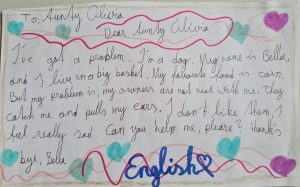 To: Aunty Olivia
Dear Aunty Olivia
I've got a problem. I'm a dog. My name is Bella,
and I live in a big basket. My favourite food is corn.
But my problem is, my owners are not nice with me. They
catch me and pulls my ears. I don't like them, I
feel really sad. Can you help me, please? thanks
bye, Bella
English